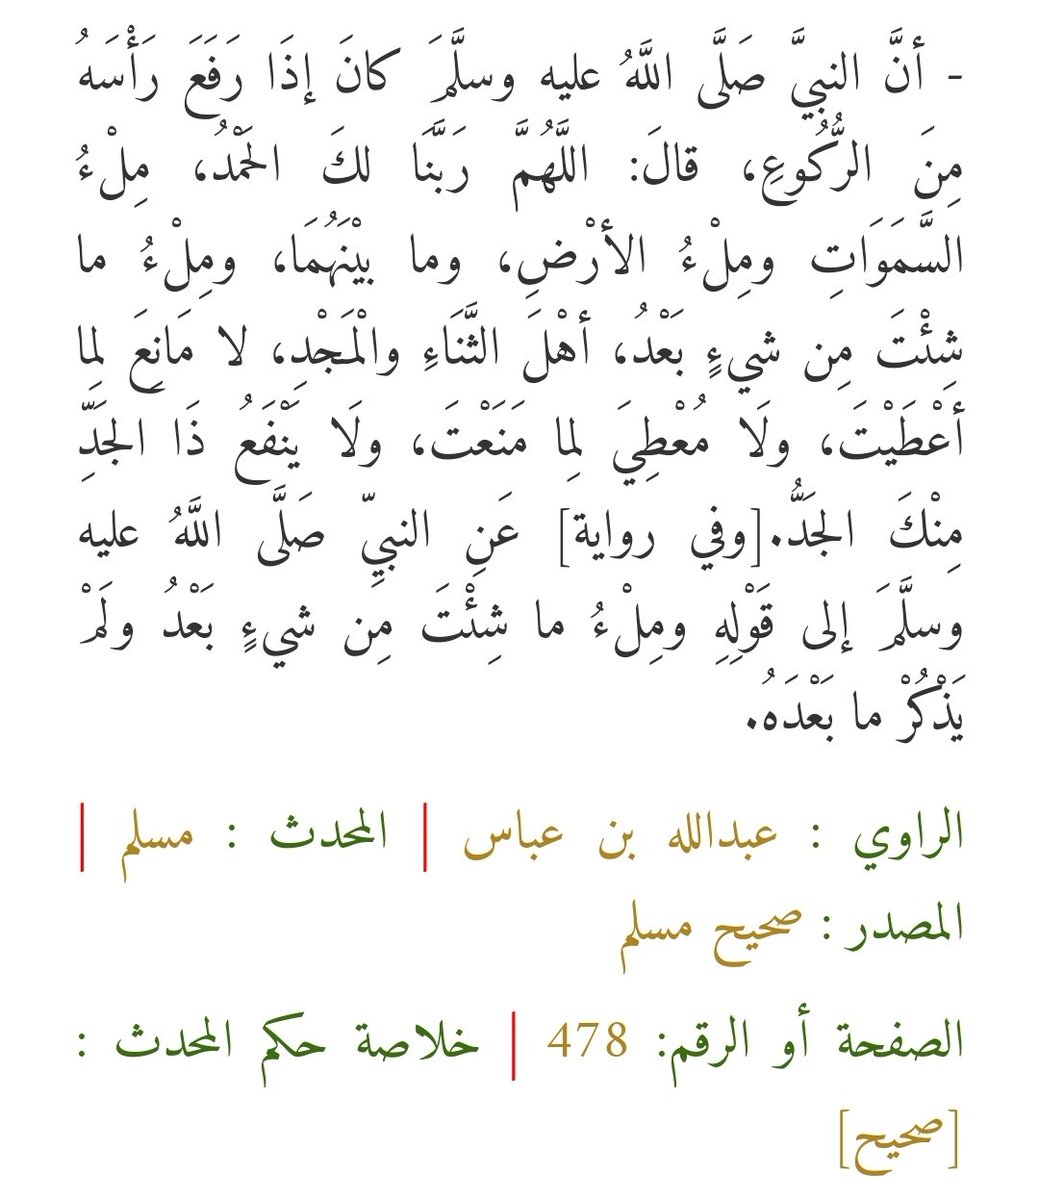 - أنَّ النبيَّ صَلَّى اللَّهُ عليه وسلَّمَ كانَ إذَا رَفَعَ رَأْسَهُ
مِنَ الرُّكُوعِ، قالَ: اللَّهُمَّ رَبَّنَا لكَ الحَمْدُ، مِلْءُ
السَّمَوَاتِ ومِلْءُ الأرْضِ، وما بيْنَهُمَا، ومِلْءُ ما
شِئْتَ مِن شيءٍ بَعْدُ، أهْلَ الثَّنَاءِ والْمَجْدِ، لا مَانِعَ لِما
أعْطَيْتَ، ولَا مُعْطِيَ لِما مَنَعْتَ، ولَا يَنْفَعُ ذَا الجَدِّ
مِنْكَ الجَدُّ.[وفي رواية] عَنِ النبيِّ صَلَّى اللَّهُ عليه
وسلَّمَ إلى قَوْلِهِ ومِلْءُ ما شِئْتَ مِن شيءٍ بَعْدُ ولَمْ
يَذْكُرْ ما بَعْدَهُ.
الراوي : عبدالله بن عباس | المحدث : مسلم |
المصدر : صحيح مسلم
الصفحة أو الرقم: 478 | خلاصة حكم المحدث :
[صحيح]